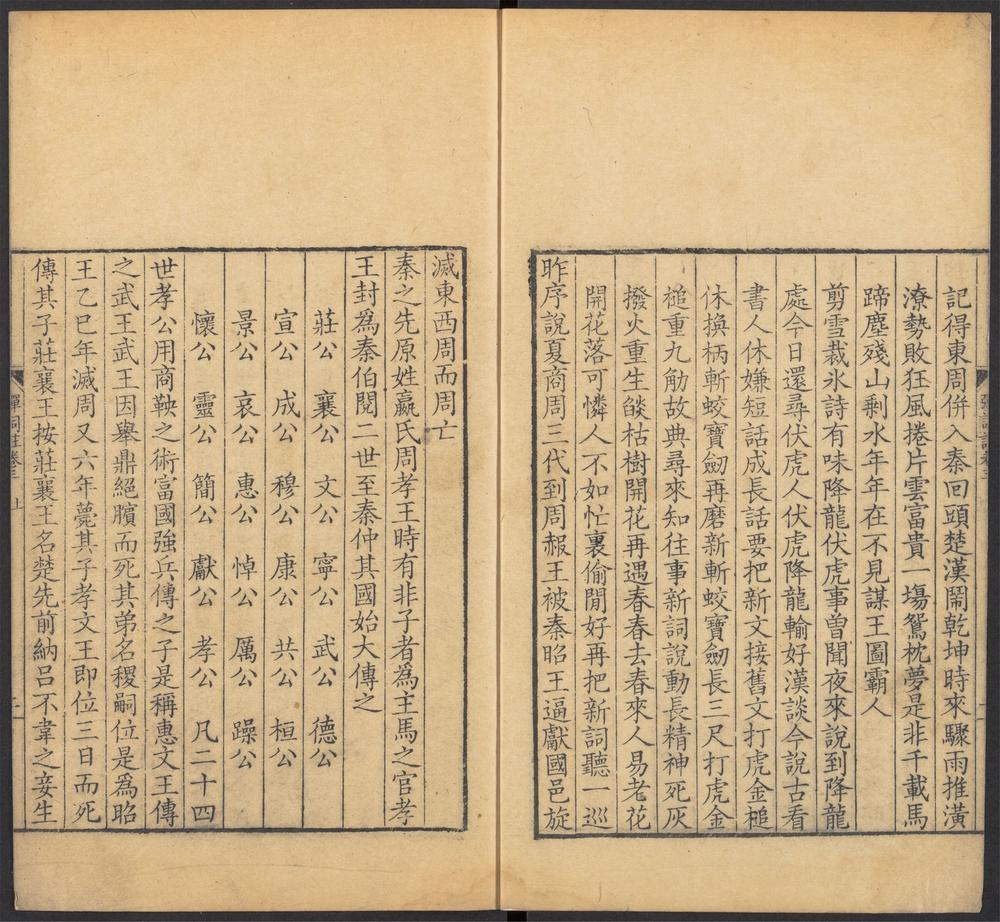 記得東周併入秦回頭楚漢鬧乾坤時來驟雨推潢
潦勢敗狂風捲片雲富貴一場鴛枕夢是非千載馬
蹄塵殘山剩水年年在不見謀王圖霸人
剪雪裁氷詩有味降龍伏虎事曽聞夜來說到降龍
處今日還尋伏虎人伏虎降龍輸好漢談今說古看
書人休嫌短話成長話要把新文接舊文打虎金槌
休換柄斬蛟寶劒再磨新斬蛟寶劒長三尺打虎金
槌重九觔故典尋來知往事新詞說動長精神死灰
撥火重生燄枯樹開花再遇春春去春來人易老花
開花落可憐人不如忙裏偷閒好再把新詞聽一巡
昨序說夏商周三代到周赧王被秦昭王逼獻國邑旋
滅東西周而周亡
秦之先原姓嬴氏周孝王時有非子者爲主馬之官孝
王封爲秦伯閱二世至秦仲其國始大傳之
莊公 襄公 文公 寧公 武公 德公
宣公 成公 穆公 康公 共公 桓公
景公 哀公 惠公 悼公 厲公 躁公
懷公 靈公 簡公 獻公 孝公 凡二十四
世孝公用商鞅之術富國強兵傳之子是稱惠文王傳
之武王武王因舉鼎絕臏而死其弟名稷嗣位是爲昭
王乙巳年滅周又六年薨其子孝文王即位三日而死
傳其子莊襄王按莊襄王名楚先前納呂不韋之妾生
彈詞註卷三